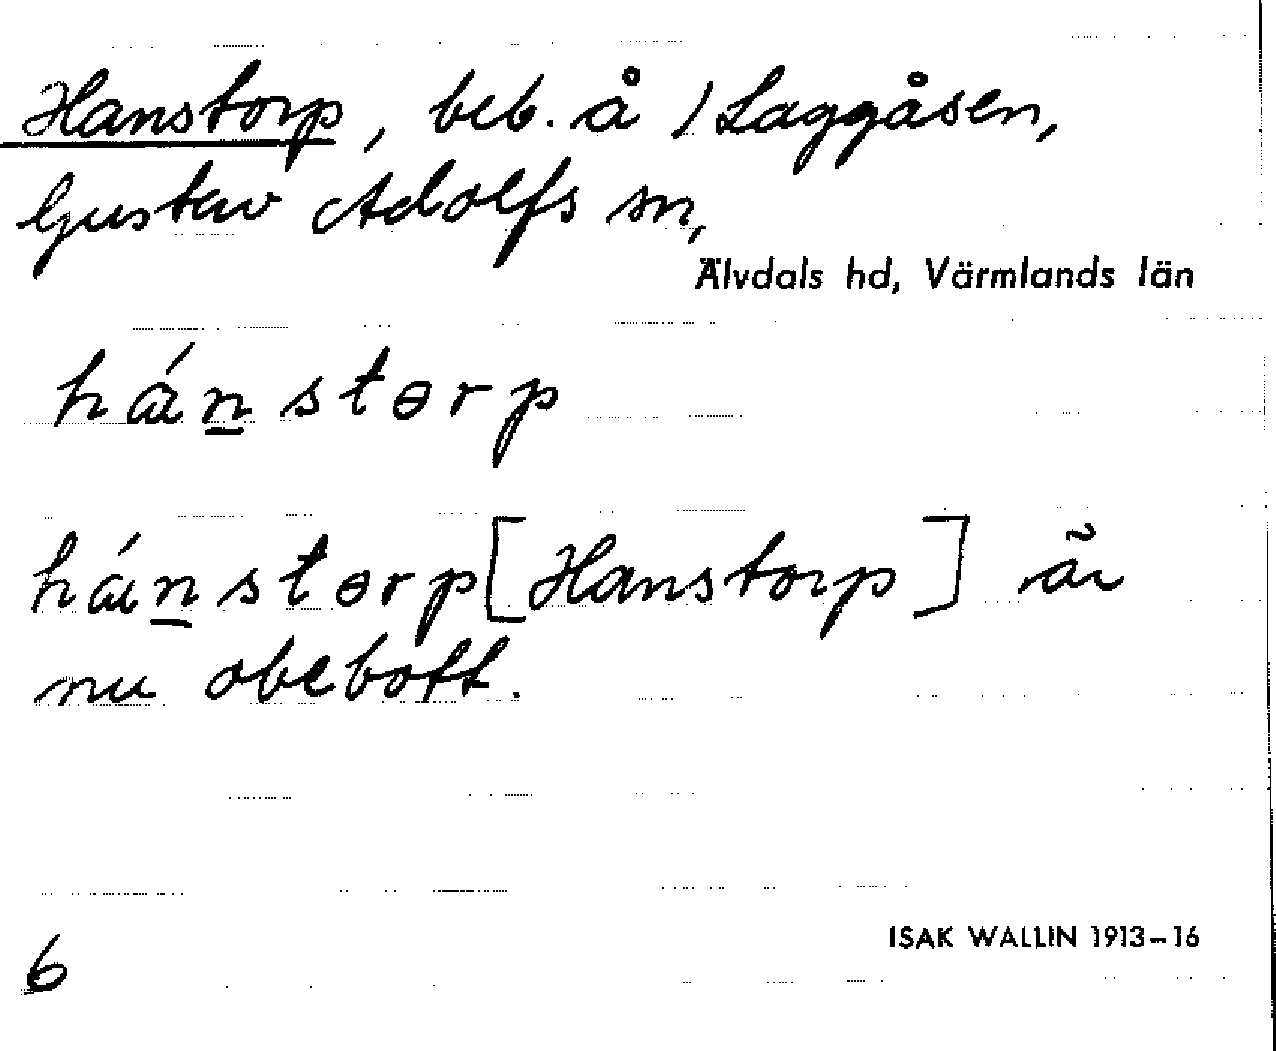 Hanstorp, beb. å /Laggåsen,
Gustav Adolfs sn,
Älvdals hd, Värmlands län
hánstɵrp
hánstɵrp [Hanstorp] är
nu obebott.
ISAK WALLIN 1913-16
6